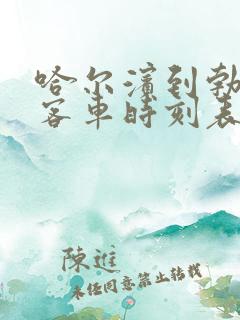 哈尔滨到勃
客车时刻表
陳進
未经同意禁止转载